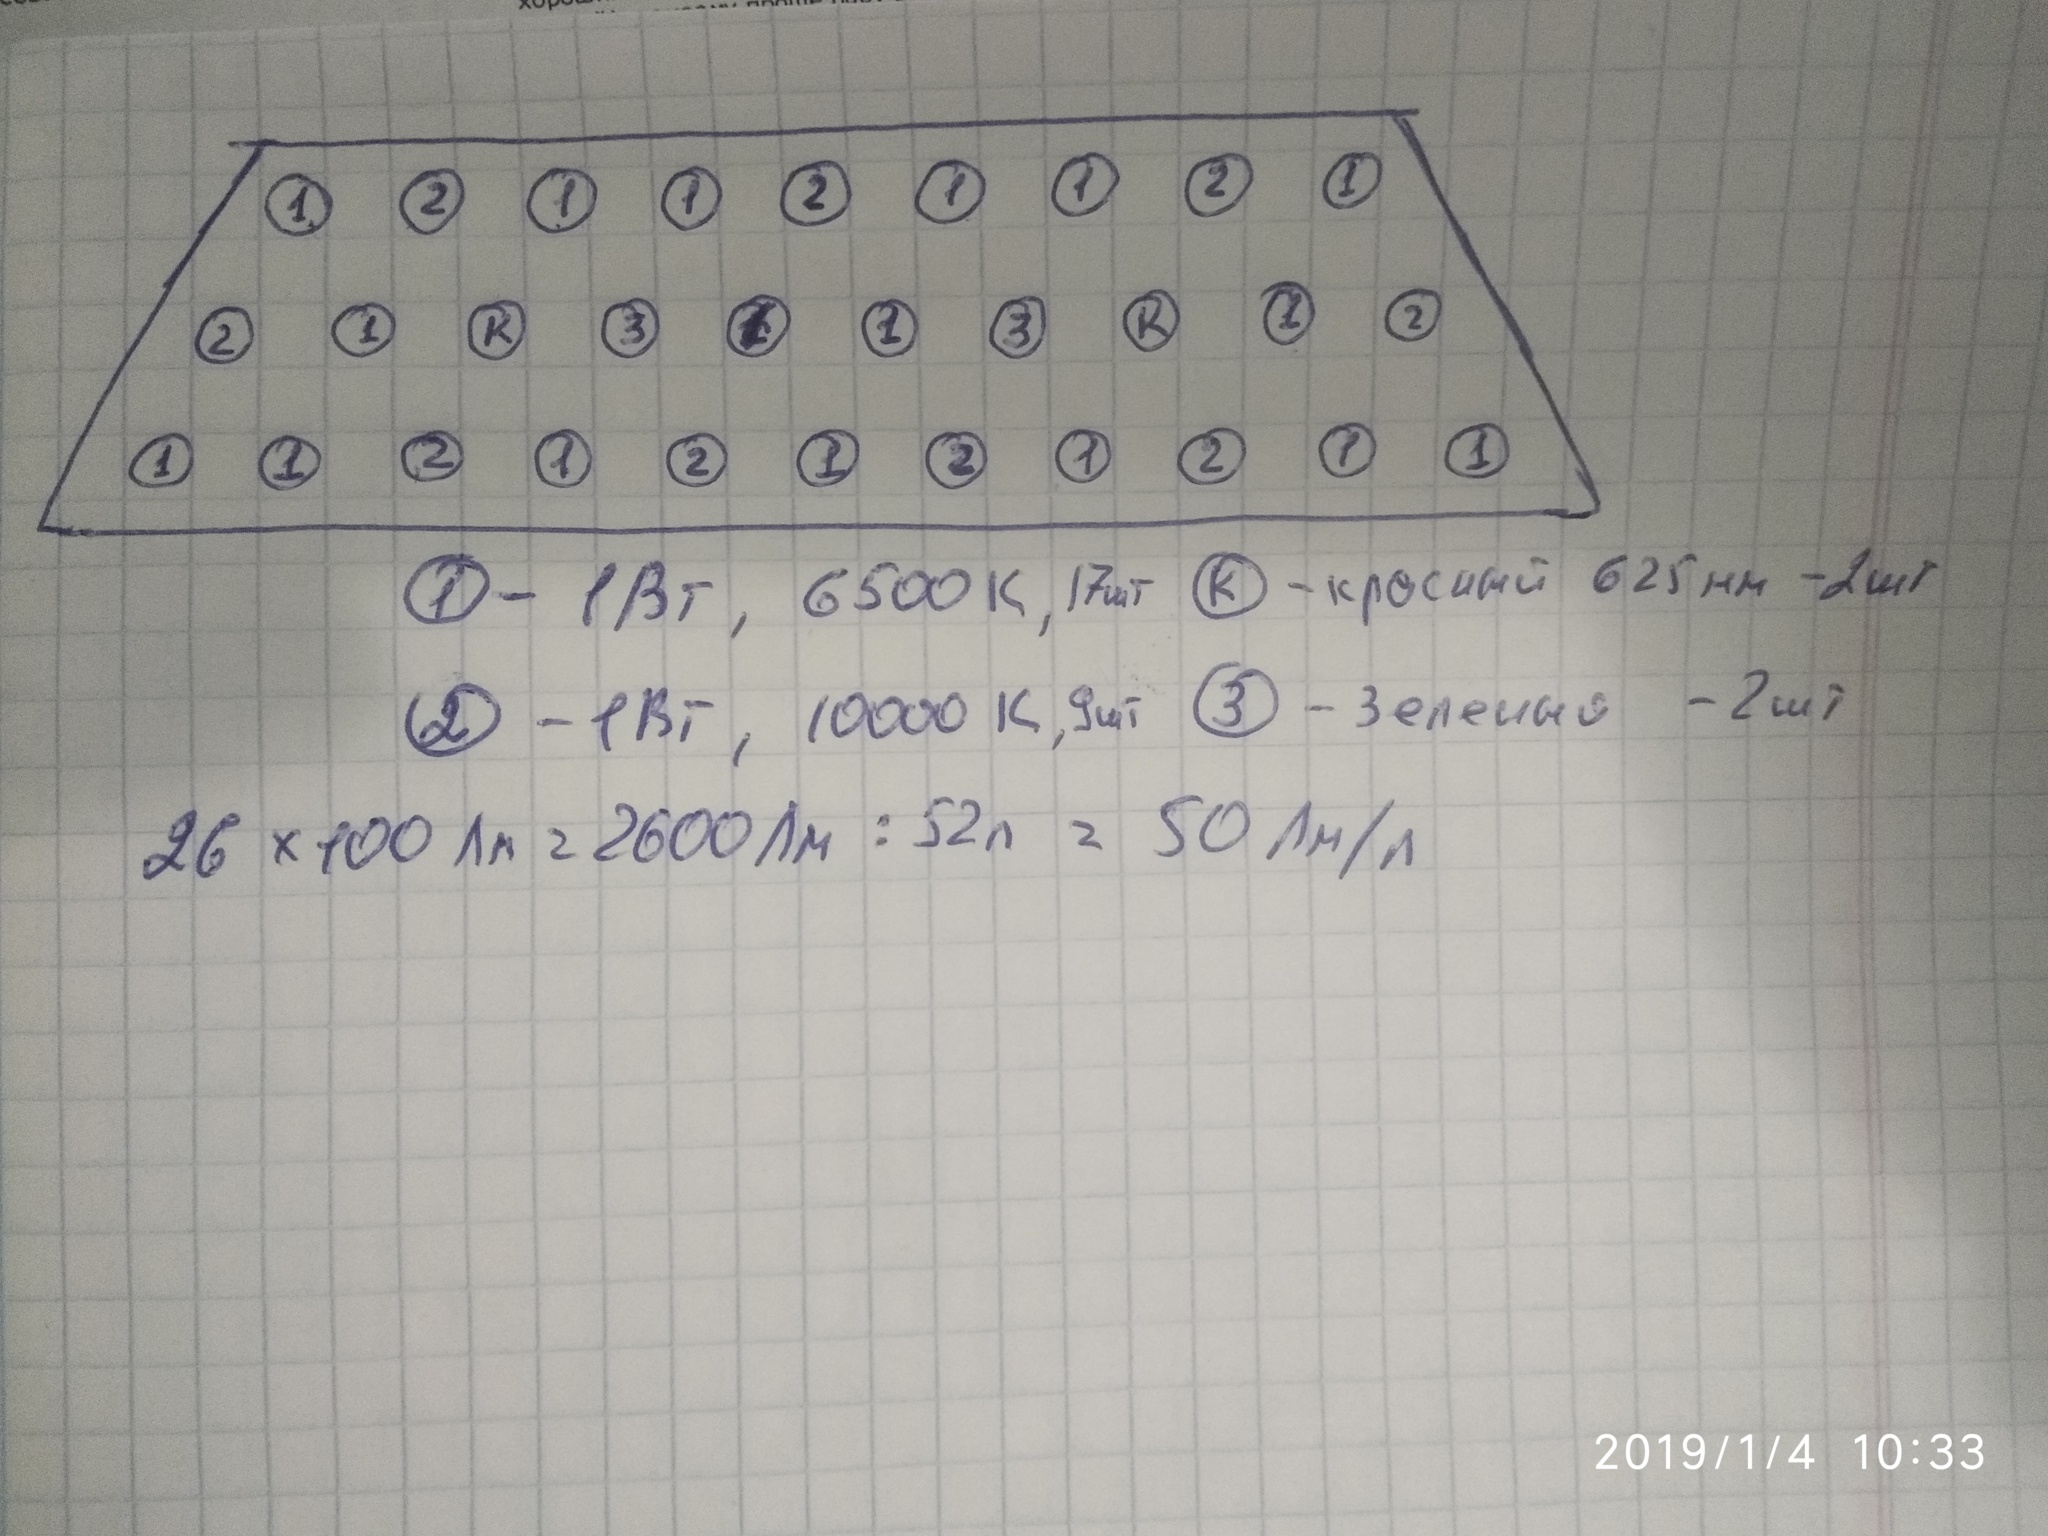 ① ② ① ① ② ① ① ② ①
② ① К ③ ① ① ③ К ① ②
① ① ② ① ② ① ② ① ② ① ①
① - 1Вт, 6500К, 17шт К - красный 625 нм - 2шт
② - 1Вт, 10000К, 9шт ③ - зеленый - 2шт
26 × 100 Лм = 2600 Лм : 52л = 50 Лм/л
2019/1/4 10:33